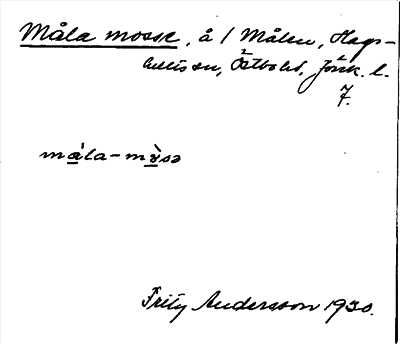 Måla mosse, å / Målen, Hags-
hultssn, Östbo hd, Jönk. l.
7.
måla-mɷ̀sə
Fritz Andersson 1930.